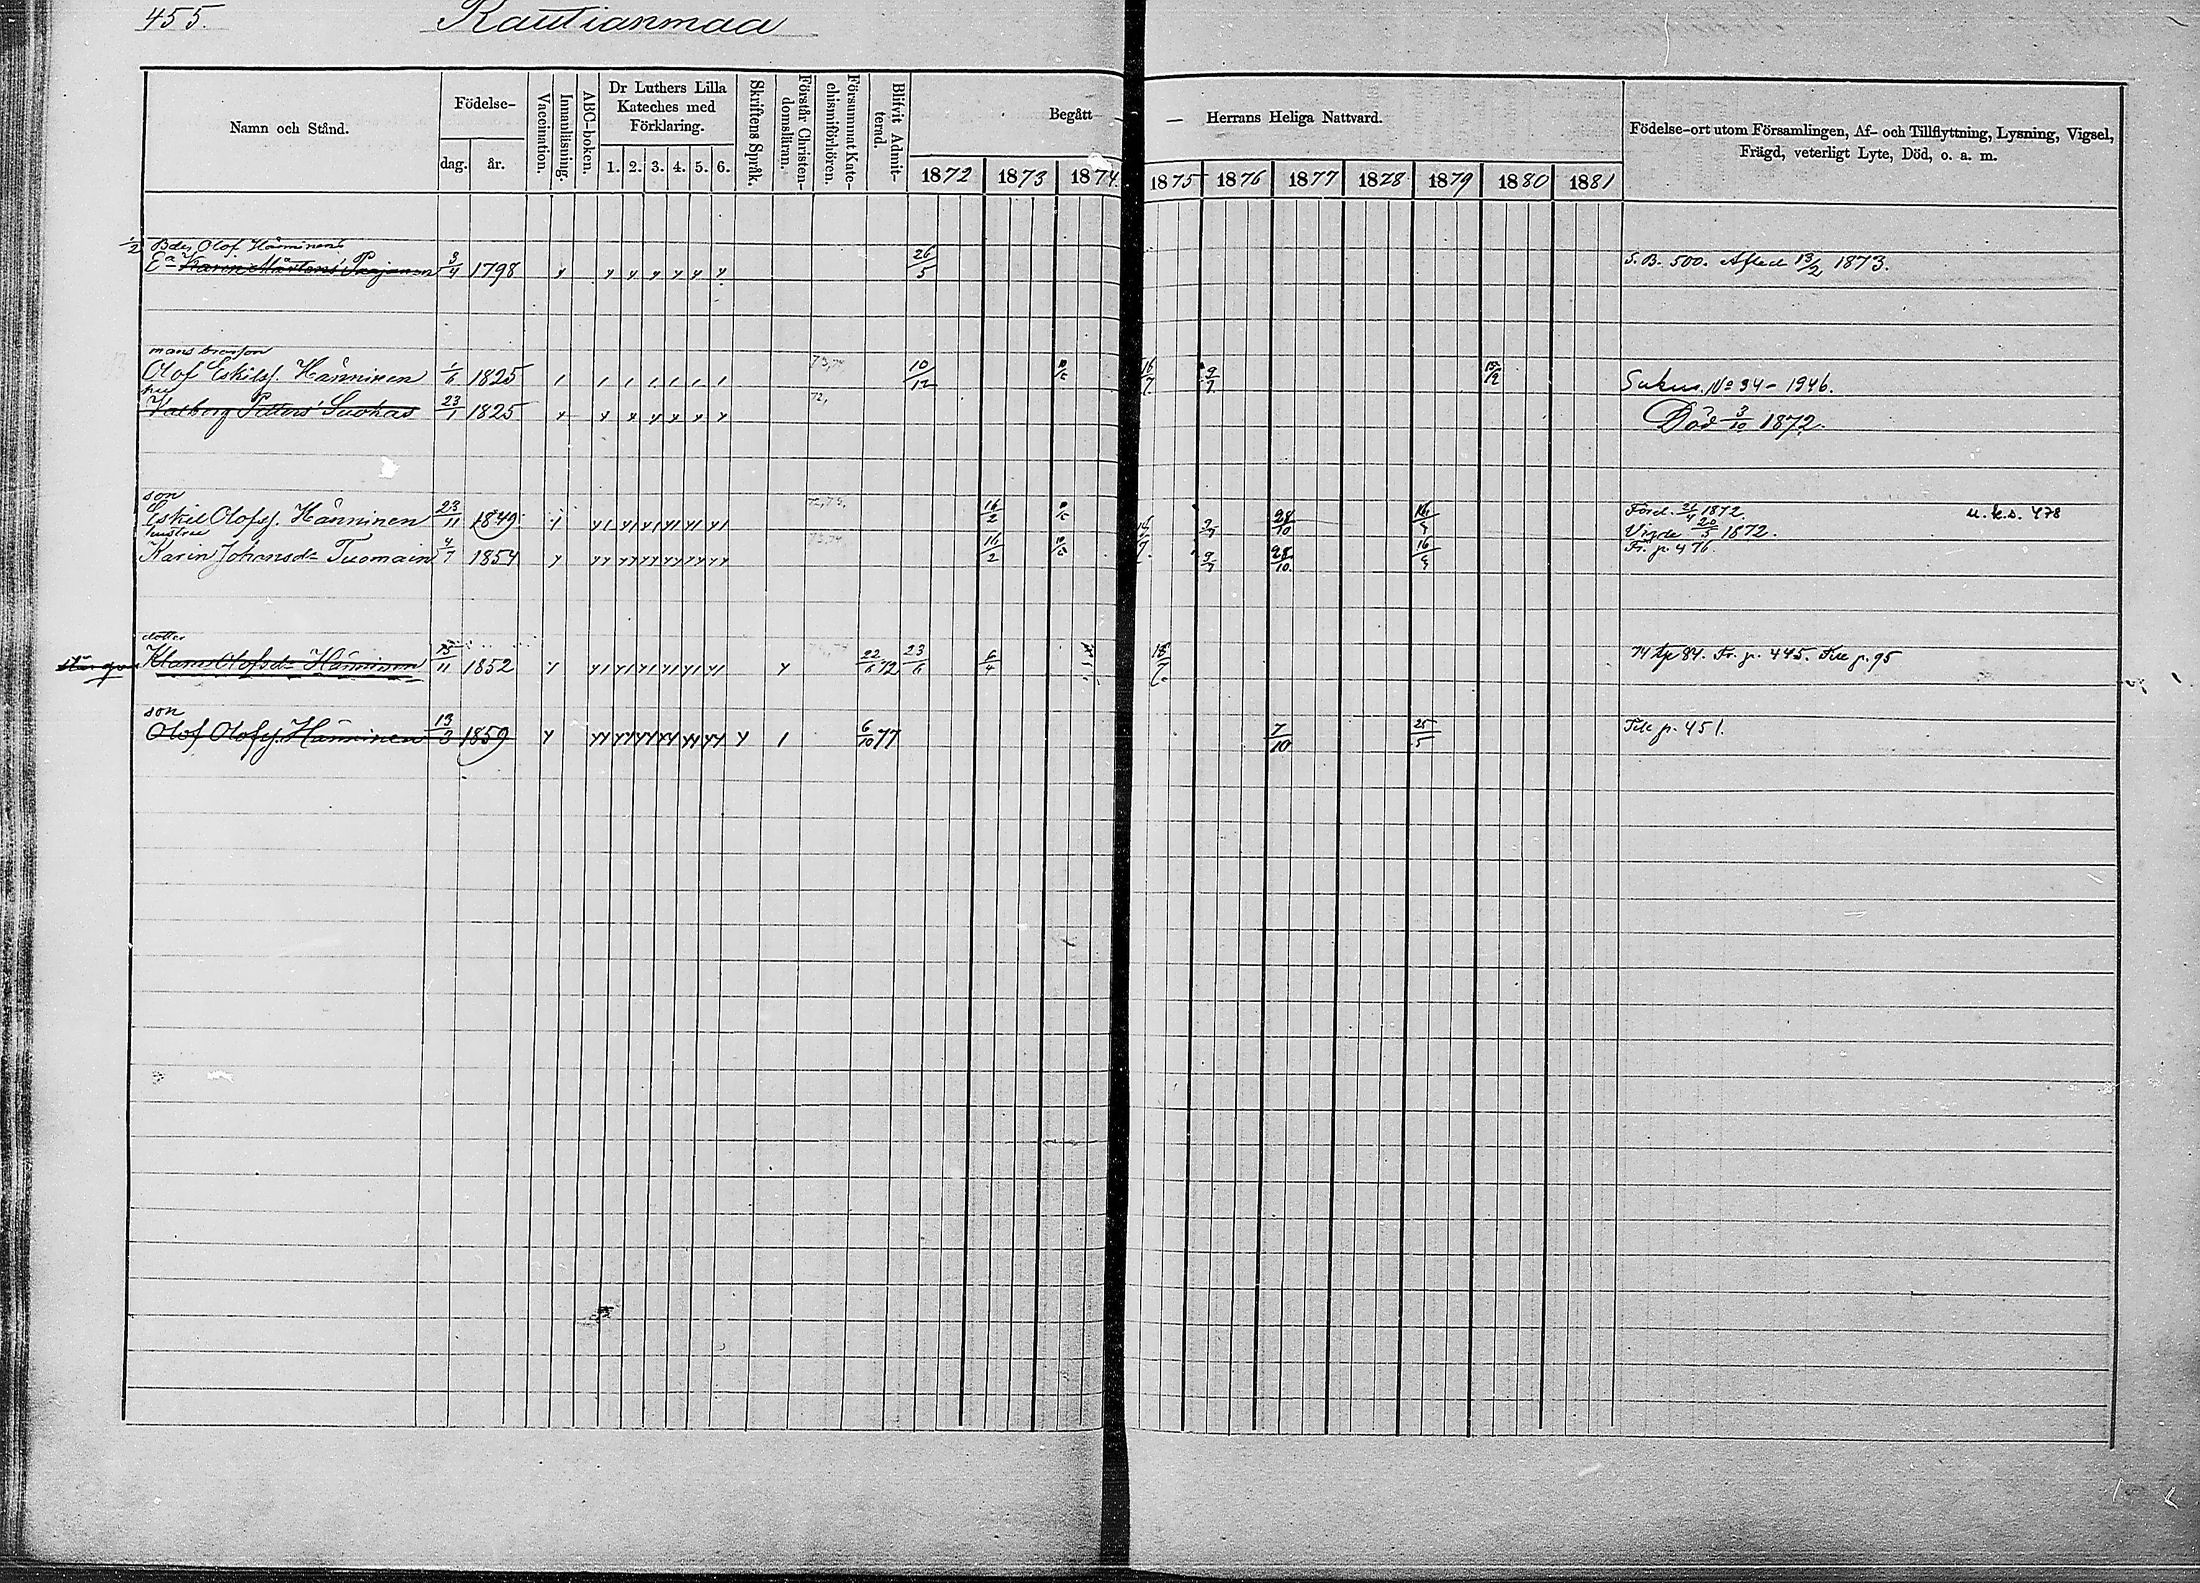 455. Rautianmaa
Namn och Stånd.
Födelse-
dag. år.
Vaccination.
Innanläsning.
ABC-boken.
Dr Luthers Lilla
Kateches med
Förklaring.
1. 2. 3. 4. 5. 6.
Skriftens Språk.
Förstår Christen-
domsläran.
Försummat Kate-
chismiförhören.
Blifvit Admit-
terad.
Begått — Herrans Heliga Nattvard.
1872 1873 1874 1875 1876 1877 1878 1879 1880 1881
Födelse-ort utom Församlingen, Af- och Tillflyttning, Lysning, Vigsel,
Frägd, veterligt Lyte, Död, o. a. m.
1/2 Bdes Olof Hänninens
Ea Karin Mårtensd Paajanen 3/4 1798 26/5 S. B. 500. Afled 13/2 1873.
mans brorson
Olof Eskilsf. Hänninen 1/6 1825 73,74 10/12 16/7 9/7 Sukus. No 34-1946.
hu
Valborg Petters Suokas 23/1 1825 72, Död 3/10 1872.
son
Eskil Olofsf. Hänninen 23/11 1849 72,73, 16/2 9/7 28/10 16/9 Förel. 21/4 1872. u.k.s. 478
Vigde 20/5 1872.
hustru
Karin Johansd- Tuomain 4/7 1854 73,74 16/2 9/7 28/10 16/9 Fr. p. 476.
dotter
Klara Olofsd- Hänninen 15/11 1852 22/6 72 23/6 6/4 18/7 74 lp 84. Fr. p. 445. Till p. 95
son
Olof Olofsf. Hänninen 13/3 1859 6/10 77 7/10 25/5 Till p. 451.